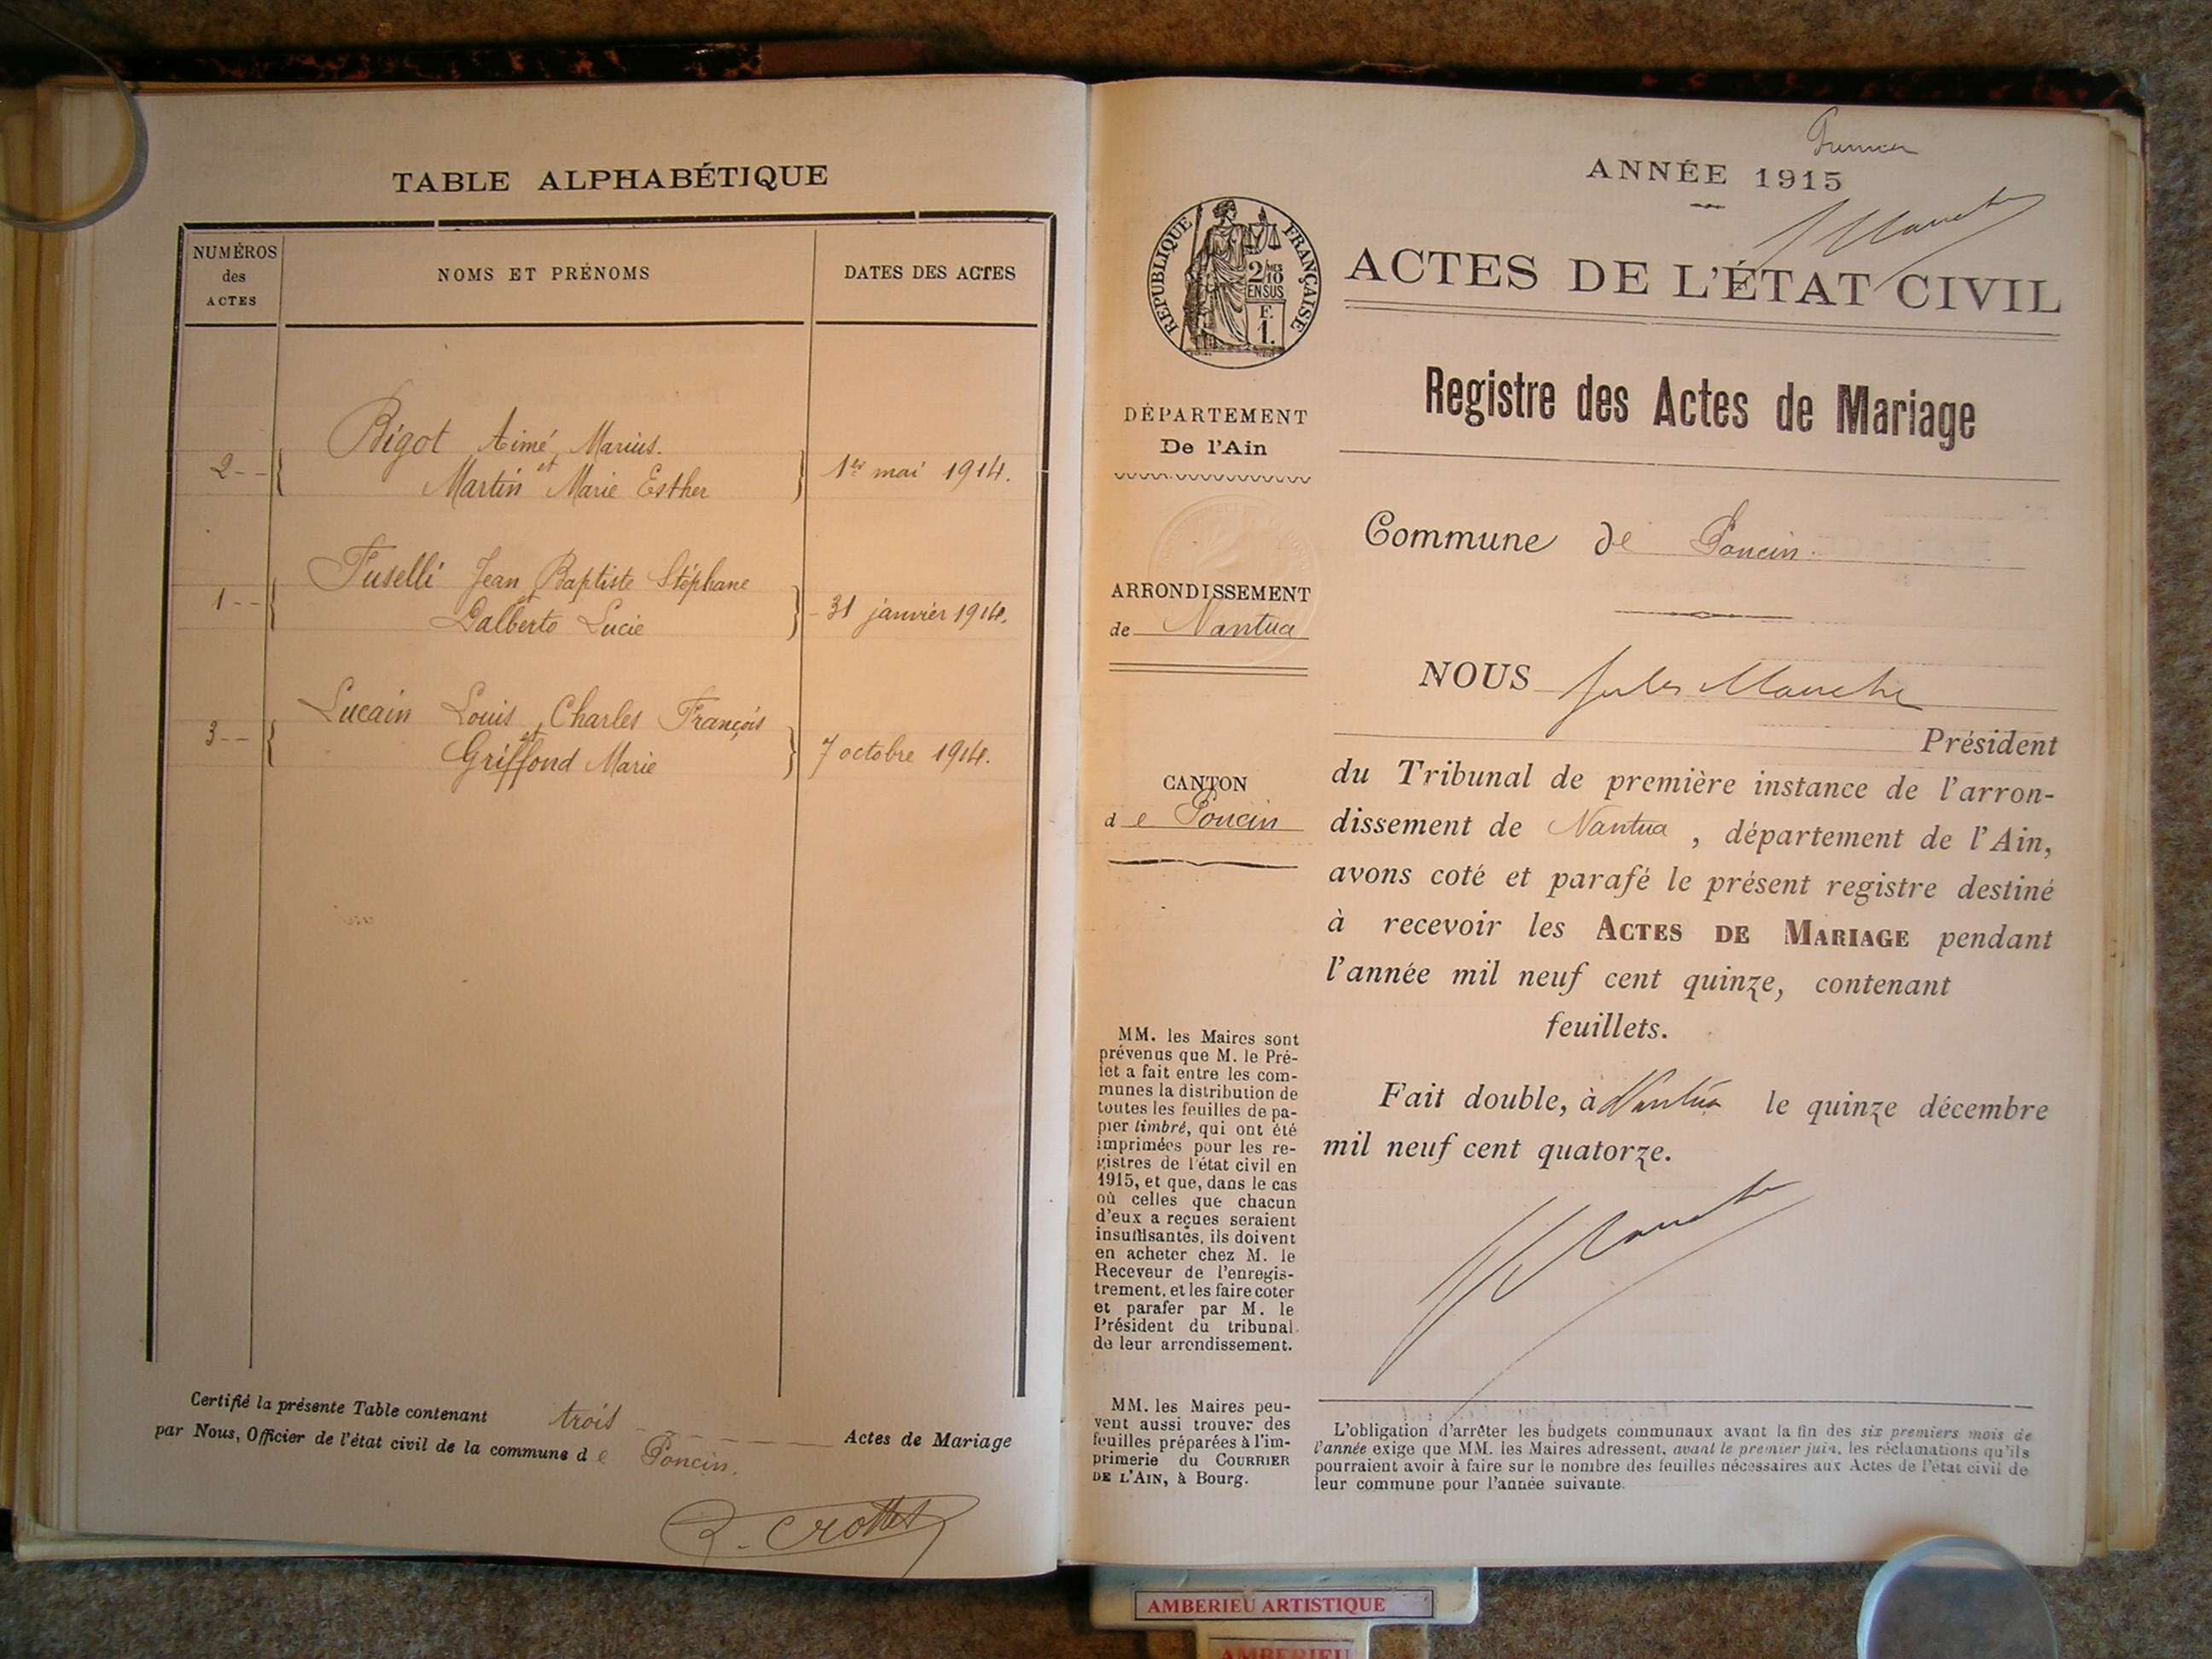 TABLE ALPHABÉTIQUE
NUMÉROS
des
ACTES
NOMS ET PRÉNOMS
DATES DES ACTES
2 -- { Bigot Aimé Marius.
et
Martin Marie Esther } 1er mai 1914.
1 -- { Fuselli Jean Baptiste Stéphane
et
Galberto Lucie } - 31 janvier 1914.
3 -- { Lucain Louis Charles François
et
Griffond Marie } 7 octobre 1914.
Certifié la présente Table contenant trois Actes de Mariage
par Nous, Officier de l'état civil de la commune de Poncin.
R. Crottet
Premier
ANNÉE 1915
RÉPUBLIQUE FRANÇAISE
2/10
EN SUS
F.
1.
ACTES DE L'ÉTAT CIVIL
Registre des Actes de Mariage
DÉPARTEMENT
De l'Ain
ARRONDISSEMENT
de Nantua
CANTON
de Poncin
MM. les Maires sont
prévenus que M. le Pré-
fet a fait entre les com-
munes la distribution de
toutes les feuilles de pa-
pier timbré, qui ont été
imprimées pour les re-
gistres de l'état civil en
1915, et que, dans le cas
où celles que chacun
d'eux a reçues seraient
insuffisantes, ils doivent
en acheter chez M. le
Receveur de l'enregis-
trement, et les faire coter
et parafer par M. le
Président du tribunal
de leur arrondissement.
MM. les Maires peu-
vent aussi trouver des
feuilles préparées à l'im-
primerie du COURRIER
DE L'AIN, à Bourg.
Commune de Poncin.
NOUS Jules
Président
du Tribunal de première instance de l'arron-
dissement de Nantua, département de l'Ain,
avons coté et parafé le présent registre destiné
à recevoir les ACTES DE MARIAGE pendant
l'année mil neuf cent quinze, contenant
feuillets.
Fait double, à Nantua le quinze décembre
mil neuf cent quatorze.
L'obligation d'arrêter les budgets communaux avant la fin des six premiers mois de
l'année exige que MM. les Maires adressent, avant le premier juin, les réclamations qu'ils
pourraient avoir à faire sur le nombre des feuilles nécessaires aux Actes de l'état civil de
leur commune pour l'année suivante.
AMBERIEU ARTISTIQUE
AMBERIEU